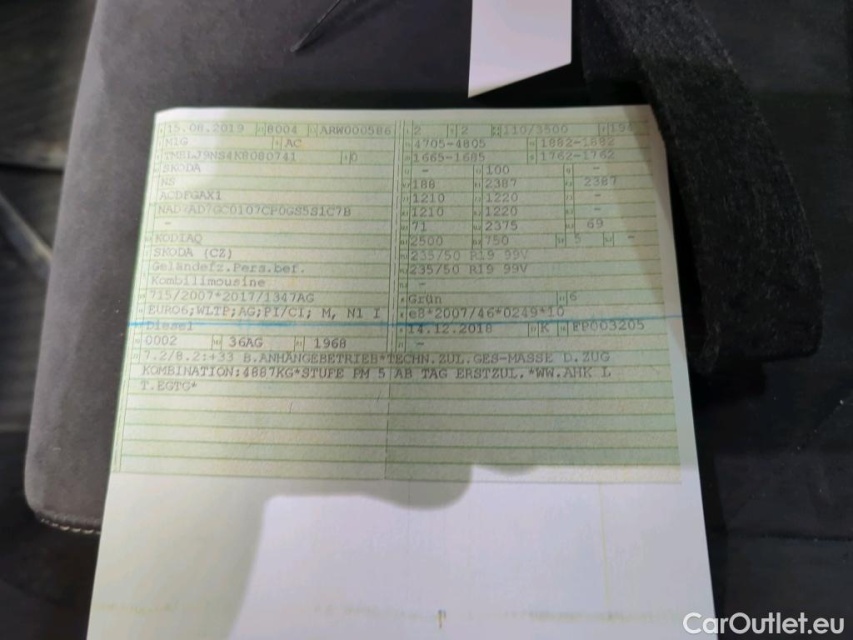 15.08.2019 8004 ARW000586 2 2 110/3500
M1G AC 4705-4805 1882-1882
TMBLJ9NS4K8080741 0 1665-1685 1762-1762
SKODA - 100 -
NS 188 2387 2387
ACDFGAX1 1210 1220 -
1210 1220 -
- 71 2375 69
KODIAQ 2500 750 5 -
SKODA (CZ) 235/50 R19 99V
Geländefz.Pers.bef. 235/50 R19 99V
Kombilimousine -
715/2007*2017/1347AG Grün 6
EURO6;WLTP;AG;PI/CI; M, N1 I e8*2007/46*0249*10
Diesel 14.12.2018 K FP003205
0002 36AG 1968 -
7.2/8.2:+33 B.ANHÄNGEBETRIEB*TECHN.ZUL.GES-MASSE D.ZUG
KOMBINATION:4887KG*STUFE PM 5 AB TAG ERSTZUL.*WW.AHK L
T.EGTG*
CarOutlet.eu